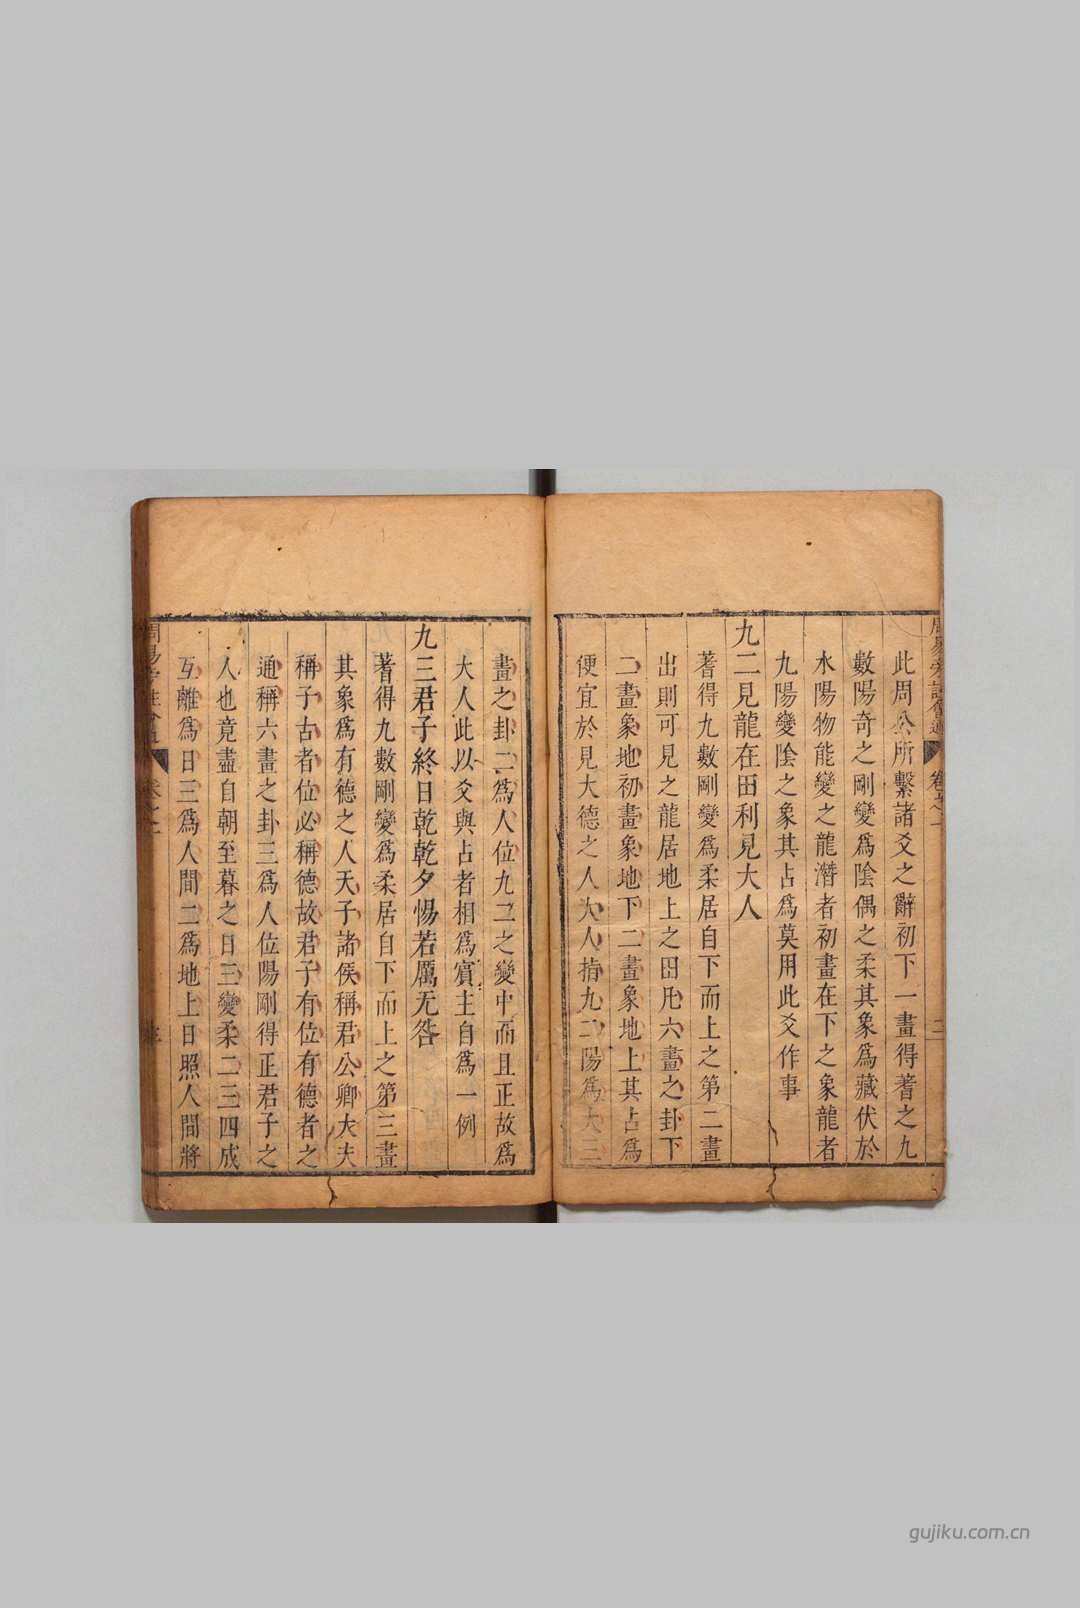 此周公所繫諸爻之辭初下一畫得蓍之九
數陽奇之剛變爲陰偶之柔其象爲藏伏於
水陽物能變之龍潛者初畫在下之象龍者
九陽變陰之象其占爲莫用此爻作事
九二見龍在田利見大人
蓍得九數剛變爲柔居自下而上之第二畫
出則可見之龍居地上之田凡六畫之卦下
二畫象地初畫象地下二畫象地上其占爲
便宜於見大德之人大人指九二陽爲大三
畫之卦二爲人位九二之變中而且正故爲
大人此以爻與占者相爲賓主自爲一例
九三君子終日乾乾夕惕若厲无咎
蓍得九數剛變爲柔居自下而上之第三畫
其象爲有德之人天子諸侯稱君公卿大夫
稱子古者位必稱德故君子有位有德者之
通稱六畫之卦三爲人位陽剛得正君子之
人也竟盡自朝至暮之日三變柔二三四成
互離爲日三爲人間二爲地上日照人間將
gujiku.com.cn